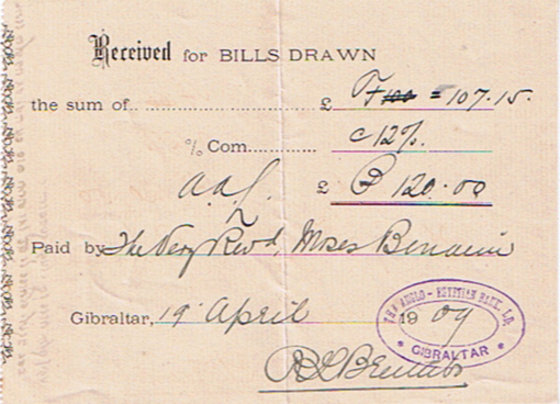 Received for BILLS DRAWN
the sum of.............................. £ F 100 = 107.15.
% Com............ c 12%.
£ 120.00
Paid by The Very Revd, Moses Benaim
Gibraltar, 19 April 1909
THE ANGLO-EGYPTIAN BANK, LD.
GIBRALTAR